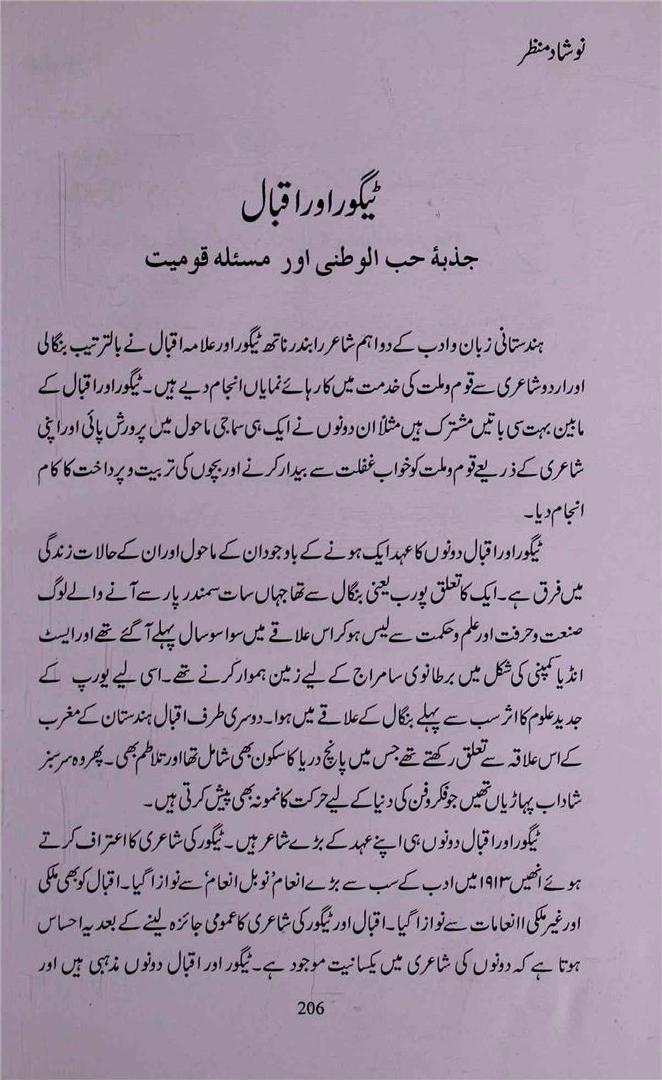 نوشاد منظر
ٹیگور اور اقبال
جذبۂ حب الوطنی اور مسئلہ قومیت
ہندستانی زبان و ادب کے دو اہم شاعر رابندر ناتھ ٹیگور اور علامہ اقبال نے بالترتیب بنگالی
اور اردو شاعری سے قوم و ملت کی خدمت میں کارہائے نمایاں انجام دیے ہیں۔ ٹیگور اور اقبال کے
مابین بہت سی باتیں مشترک ہیں مثلاً ان دونوں نے ایک ہی سماجی ماحول میں پرورش پائی اور اپنی
شاعری کے ذریعے قوم و ملت کو خواب غفلت سے بیدار کرنے اور بچوں کی تربیت و پرداخت کا کام
انجام دیا۔
ٹیگور اور اقبال دونوں کا عہد ایک ہونے کے باوجود ان کے ماحول اور ان کے حالات زندگی
میں فرق ہے۔ ایک کا تعلق پورب یعنی بنگال سے تھا جہاں سات سمندر پار سے آنے والے لوگ
صنعت و حرفت اور علم و حکمت سے لیس ہو کر اس علاقے میں سوا سو سال پہلے آ گئے تھے اور ایسٹ
انڈیا کمپنی کی شکل میں برطانوی سامراج کے لیے زمین ہموار کرنے تھے۔ اسی لیے یورپ کے
جدید علوم کا اثر سب سے پہلے بنگال کے علاقے میں ہوا۔ دوسری طرف اقبال ہندستان کے مغرب
کے اس علاقہ سے تعلق رکھتے تھے جس میں پانچ دریا کا سکون بھی شامل تھا اور تلاطم بھی۔ پھر وہ سرسبز
شاداب پہاڑیاں تھیں جو فکر و فن کی دنیا کے لیے حرکت کا نمونہ بھی پیش کرتی ہیں۔
ٹیگور اور اقبال دونوں ہی اپنے عہد کے بڑے شاعر ہیں۔ ٹیگور کی شاعری کا اعتراف کرتے
ہوئے انھیں ۱۹۱۳ میں ادب کے سب سے بڑے انعام ’نوبل انعام‘ سے نوازا گیا۔ اقبال کو بھی ملکی
اور غیر ملکی اانعامات سے نوازا گیا۔ اقبال اور ٹیگور کی شاعری کا عمومی جائزہ لینے کے بعد یہ احساس
ہوتا ہے کہ دونوں کی شاعری میں یکسانیت موجود ہے۔ ٹیگور اور اقبال دونوں مذہبی ہیں اور
206